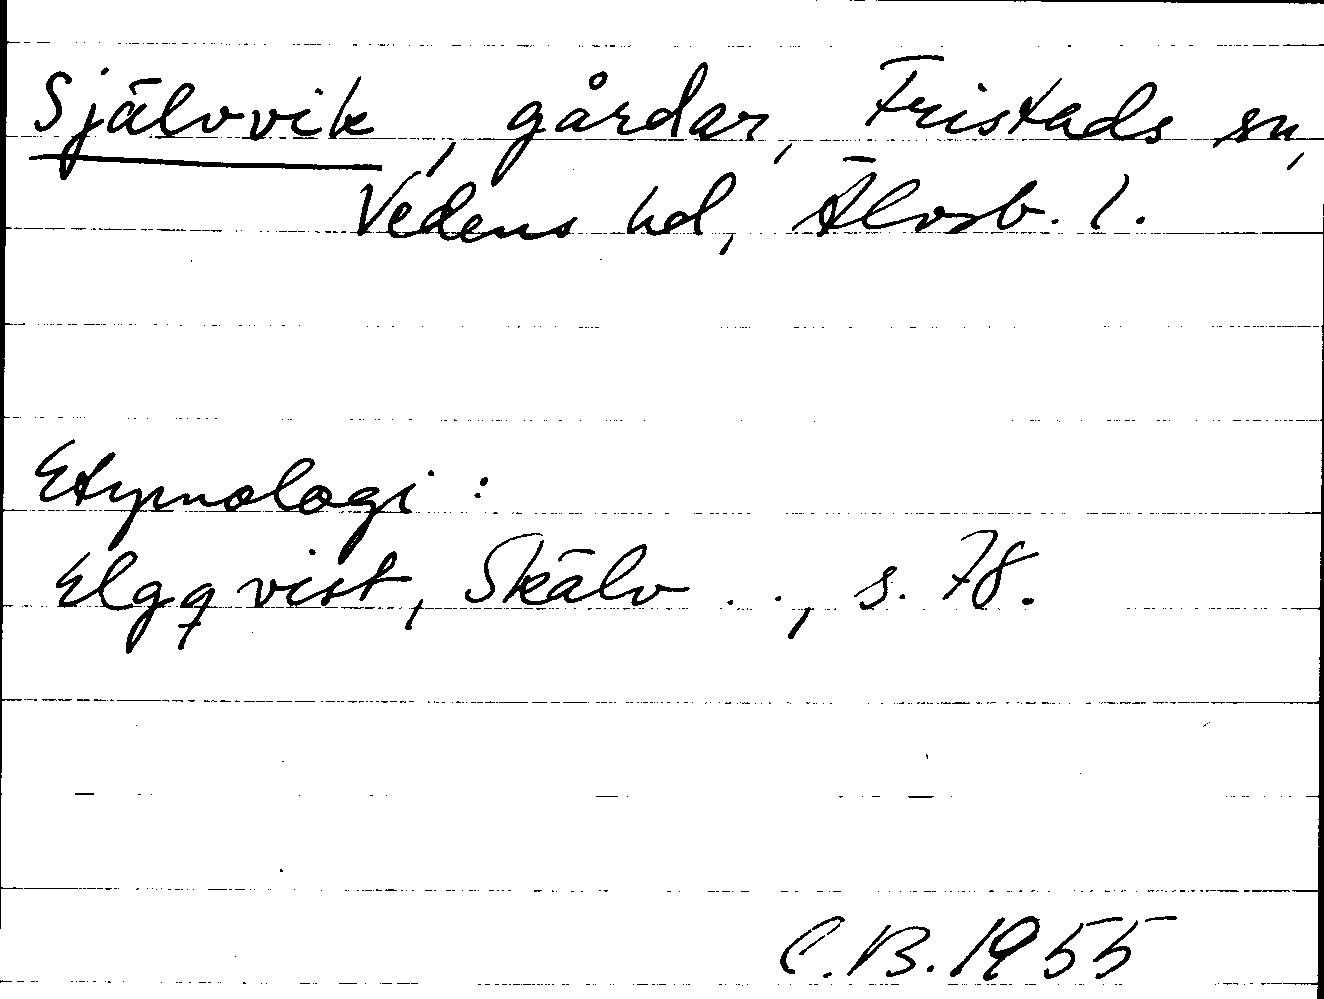 Självvik, gårdar, Fristads sn,
Vedens hd, Älvsb. l.
Etymologi :
Elgqvist, Skälv . ., s. 78.
C.B. 1955